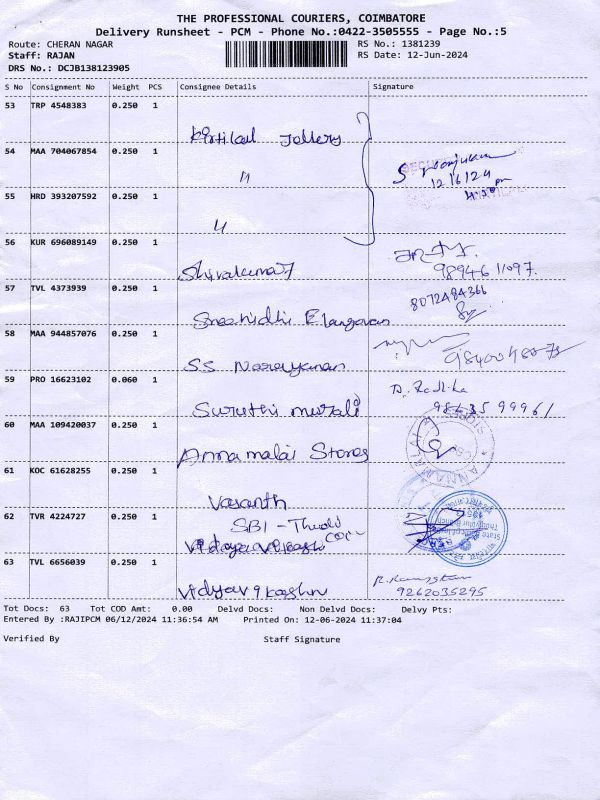 THE PROFESSIONAL COURIERS, COIMBATORE
Delivery Runsheet - PCM - Phone No.:0422-3505555 - Page No.:5
Route: CHERAN NAGAR
RS No.: 1381239
Staff: RAJAN
RS Date: 12-Jun-2024
DRS No.: DCJB138123905
S No Consignment No Weight PCS Consignee Details Signature
53 TRP 4548383 0.250 1
54 MAA 704067854 0.250 1
12/6/24
55 HRD 393207592 0.250 1
56 KUR 696089149 0.250 1
Shivakumar
57 TVL 4373939 0.250 1
8072484366
Sreenidhi Elangovan
58 MAA 944857076 0.250 1
SS Narayanan
59 PRO 16623102 0.060 1
D. Radhika
Suruthi murali
60 MAA 109420037 0.250 1
Annamalai Stores
61 KOC 61628255 0.250 1
Vasanth
62 TVR 4224727 0.250 1
SBI -
63 TVL 6656039 0.250 1
9262035295
Tot Docs: 63 Tot COD Amt: 0.00 Delvd Docs: Non Delvd Docs: Delvy Pts:
Entered By :RAJIPCM 06/12/2024 11:36:54 AM Printed On: 12-06-2024 11:37:04
Verified By Staff Signature